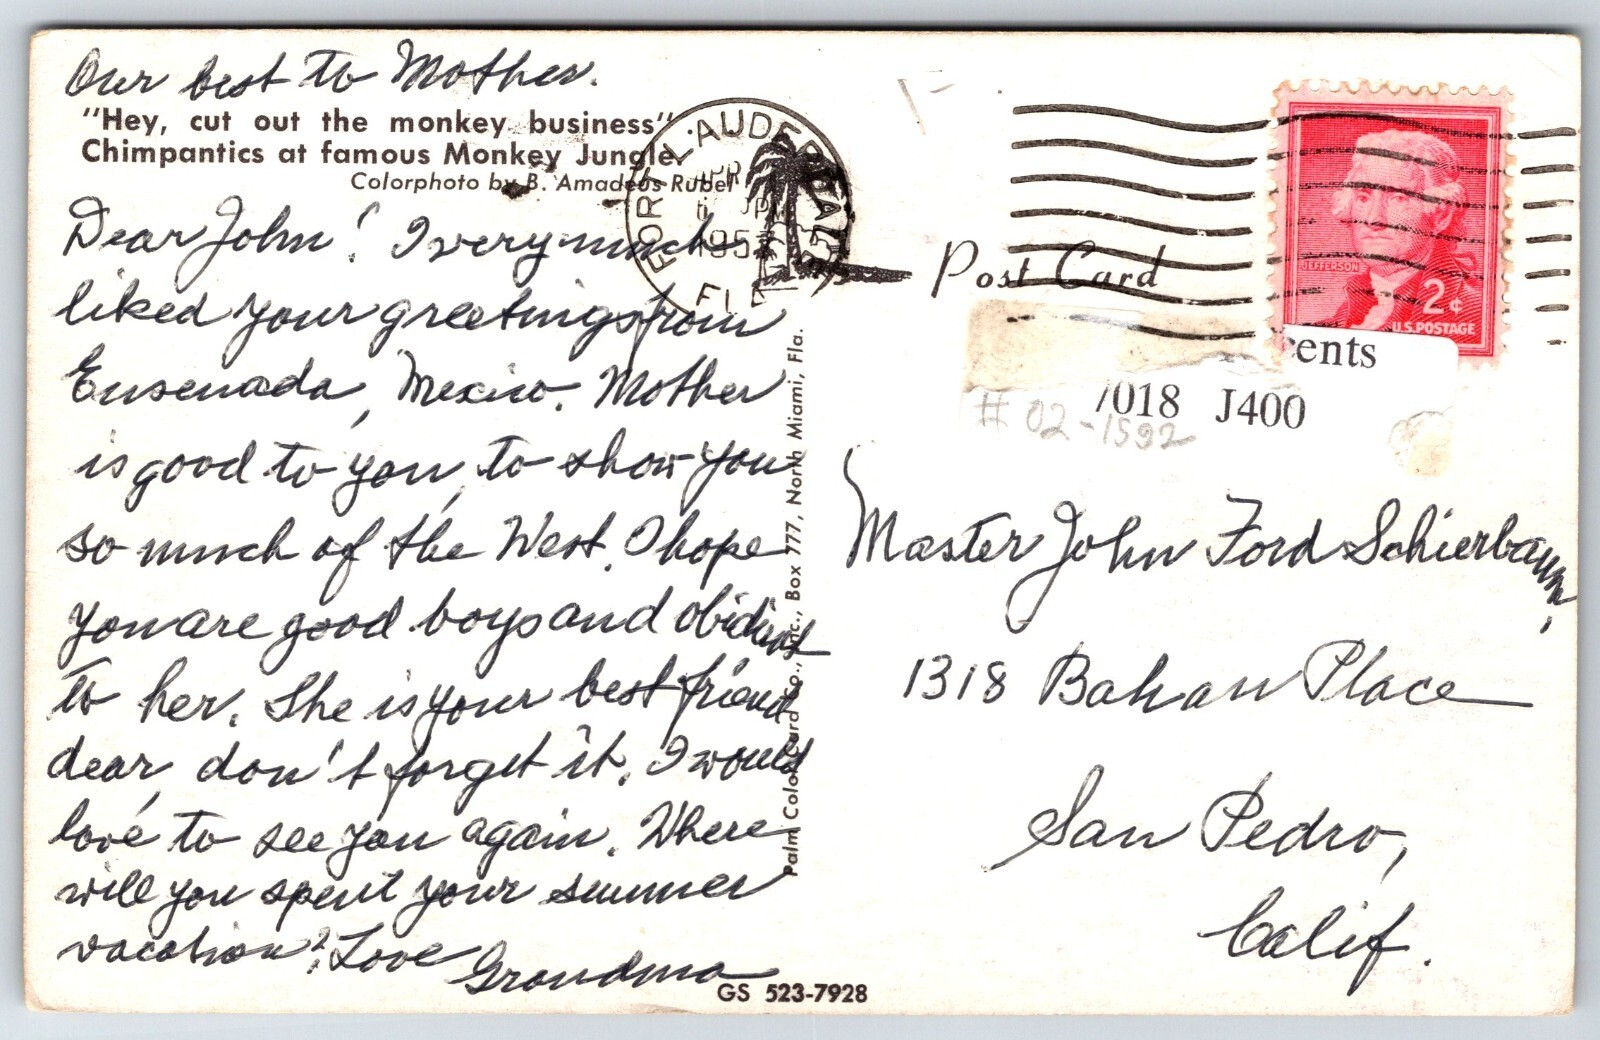 Our best to Mother.
"Hey, cut out the monkey business"
Chimpantics at famous Monkey Jungle.
Colorphoto by B. Amadeus Rubel
Dear John! I very much
liked your greetings from
Ensenada, Mexico. Mother
is good to you, to show you
so much of the West. I hope
you are good boys and obidient
to her. She is your best friend
dear, don't forget it. I would
love to see you again. Where
will you spent your summer
vacation? Love
Grandma
GS 523-7928
Palm Color Card Co., Inc., Box 777, North Miami, Fla.
FORT LAUDERDALE
APR
195
FLA
Post Card
JEFFERSON
2¢
U.S. POSTAGE
cents
7018 J400
# 02-1592
Master John Ford Schierbaum,
1318 Bahan Place
San Pedro,
Calif.